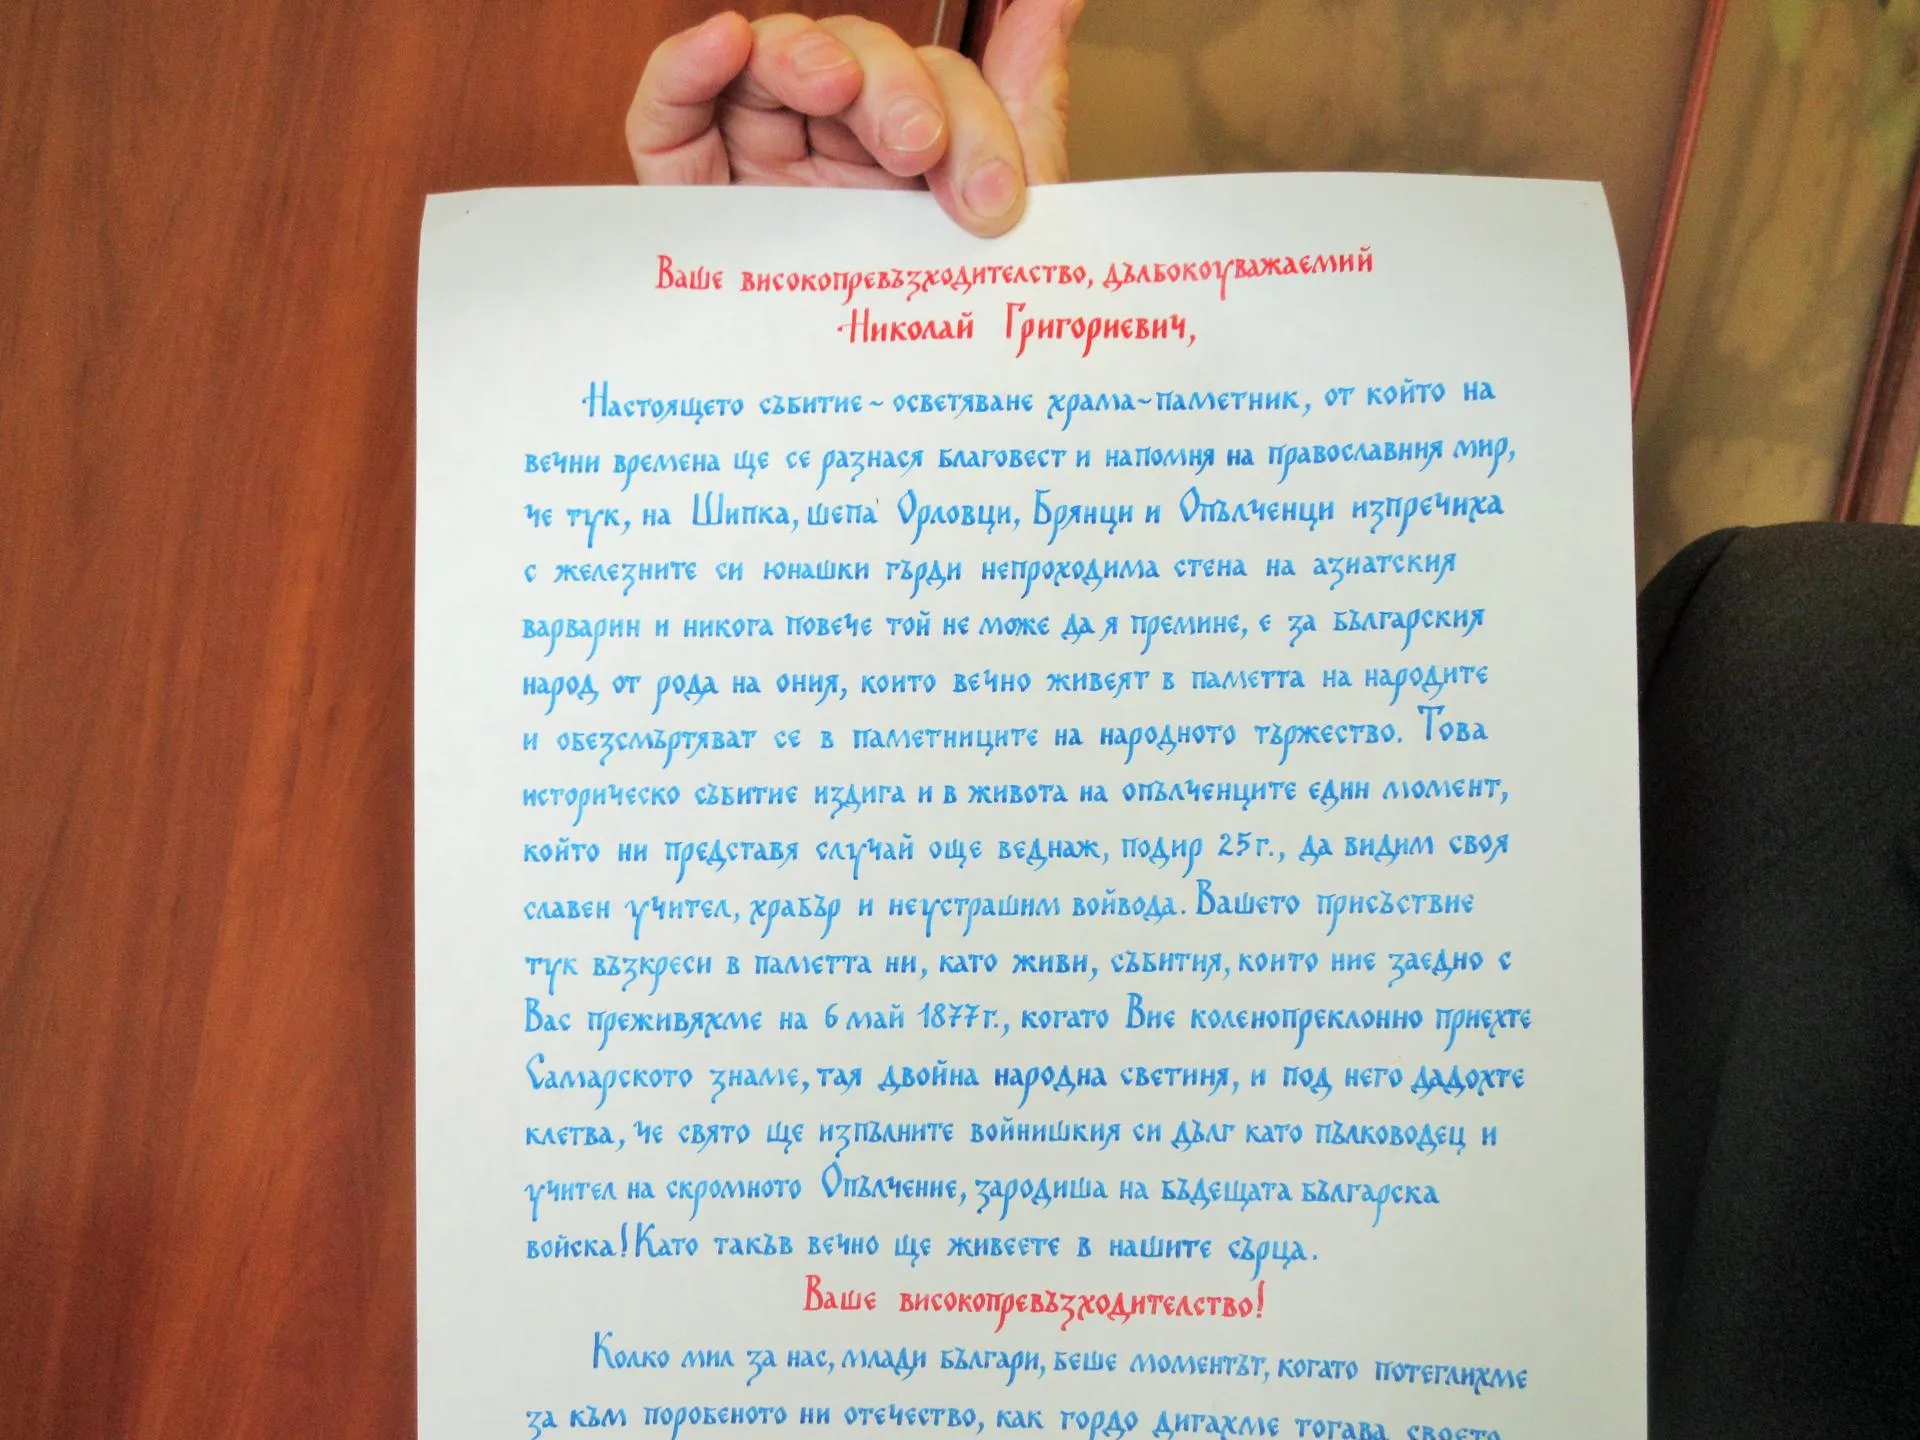 Ваше високопревъзходителство, дълбокоуважаемий
Николай Григориевич,
Настоящето събитие ~ осветяване храма~паметник, от който на
вечни времена ще се разнася благовест и напомня на православния мир,
че тук, на Шипка, шепа Орловци, Брянци и Опълченци изпречиха
с железните си юнашки гърди непроходима стена на азиатския
варварин и никога повече той не може да я премине, е за българския
народ от рода на ония, които вечно живеят в паметта на народите
и обезсмъртяват се в паметниците на народното тържество. Това
историческо събитие издига и в живота на опълченците един момент,
който ни представя случай още веднаж, подир 25 г., да видим своя
славен учител, храбър и неустрашим войвода. Вашето присъствие
тук възкреси в паметта ни, като живи, събития, които ние заедно с
Вас преживяхме на 6 май 1877 г., когато Вие коленопреклонно приехте
Самарското знаме, тая двойна народна светиня, и под него дадохте
клетва, че свято ще изпълните войнишкия си дълг като пълководец и
учител на скромното Опълчение, зародиша на бъдещата българска
войска! Като такъв вечно ще живеете в нашите сърца.
Ваше високопревъзходителство!
Колко мил за нас, млади българи, беше моментът, когато потеглихме
за към поробеното ни отечество, как гордо дигахме тогава своето